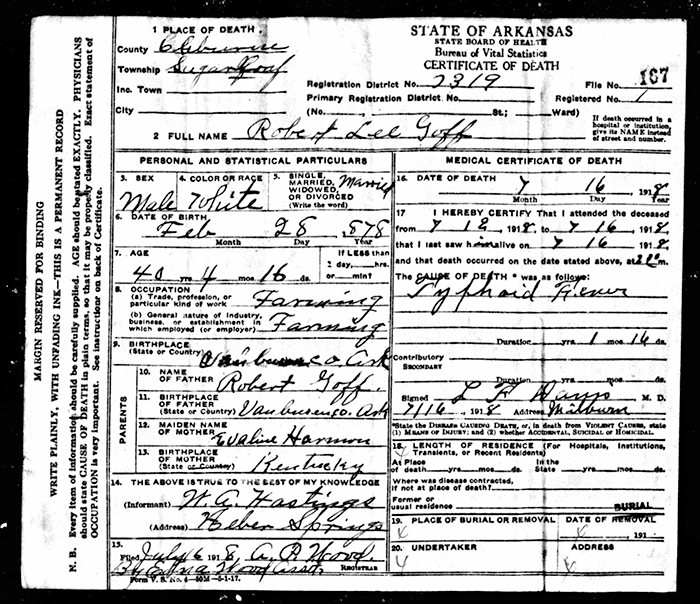 MARGIN RESERVED FOR BINDING
WRITE PLAINLY, WITH UNFADING INK—THIS IS A PERMANENT RECORD
N. B. Every item of information should be carefully supplied. AGE should be stated EXACTLY. PHYSICIANS
should state CAUSE OF DEATH in plain terms, so that it may be properly classified. Exact statement of
OCCUPATION is very important. See instructions on back of Certificate.
1 PLACE OF DEATH.
County Cleburne
Township Sugar Loaf
Inc. Town
City
STATE OF ARKANSAS
STATE BOARD OF HEALTH
Bureau of Vital Statistics
CERTIFICATE OF DEATH
Registration District No. 2319 File No. 167
Primary Registration District No. Registered No. 1
(No. , St.; Ward)
If death occurred in a
hospital or institution,
give its NAME instead
of street and number.
2 FULL NAME Robert Lee Goff
PERSONAL AND STATISTICAL PARTICULARS
3. SEX Male
4. COLOR OR RACE White
5. SINGLE, MARRIED, WIDOWED, OR DIVORCED (Write the word) Married
6. DATE OF BIRTH
Feb 28 878
Month Day Year
7. AGE
40 yrs 4 mos 16 ds.
If LESS than
1 day, hrs.
or min?
8. OCCUPATION
(a) Trade, profession, or
particular kind of work Farming
(b) General nature of industry,
business, or establishment in
which employed (or employer) Farming
9. BIRTHPLACE
(State or Country) Vanburen co Ark
PARENTS
10. NAME
OF FATHER Robert Goff.
11. BIRTHPLACE
OF FATHER
(State or Country) Vanburen co. Ark
12. MAIDEN NAME
OF MOTHER Evaline Harmon
13. BIRTHPLACE
OF MOTHER
(State or Country) Kentucky
14. THE ABOVE IS TRUE TO THE BEST OF MY KNOWLEDGE
(Informant) W. A. Hastings
(Address) Heber Springs
15.
Filed July 6 191 8, A. P. Wood.
By Edna Wood Asst REGISTRAR
Form V. S. No. 4—50M—5-1-17.
MEDICAL CERTIFICATE OF DEATH
16. DATE OF DEATH 7 16 , 191 8
Month Day Year
17 I HEREBY CERTIFY That I attended the deceased
from 7 12 191 8, to 7 16 , 191 8,
that I last saw him alive on 7 16 , 191 8,
and that death occurred on the date stated above, at m.
The CAUSE OF DEATH * was as follows:
Typhoid Fever
Duration yrs. 1 mos. 16 ds.
Contributory
SECONDARY
Duration yrs. mos. ds.
Signed M. D.
7/16 , 191 8 Address Wilburn
*State the DISEASE CAUSING DEATH, or, in death from VIOLENT CAUSES, state
(1) MEANS OF INJURY; and (2) whether ACCIDENTAL, SUICIDAL or HOMICIDAL.
18. LENGTH OF RESIDENCE (For Hospitals, Institutions,
Transients, or Recent Residents)
At Place In the
of death yrs. mos. ds. State yrs. mos. ds.
Where was disease contracted,
if not at place of death?
Former or
usual residence
19. PLACE OF BURIAL OR REMOVAL
BURIAL
DATE OF REMOVAL
191
20. UNDERTAKER ADDRESS